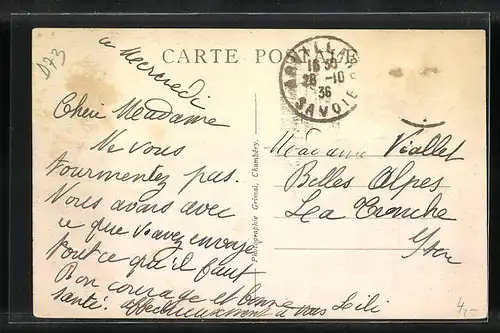 D73
ce Mercredi
CARTE POSTALE
ARVILLARD
18 30
28 -10
36
SAVOIE
Cheu Meadame
Ne vous
tourmentez pas.
Nous avons avec
ce que v. avez envoyé
tout ce qu'il faut
Bon courage et bonne
santé. affectueusement à vous Lili
Photographie Grimal, Chambéry.
Madame Viallet
Belles Alpes
La Tronche
Isère
4,-